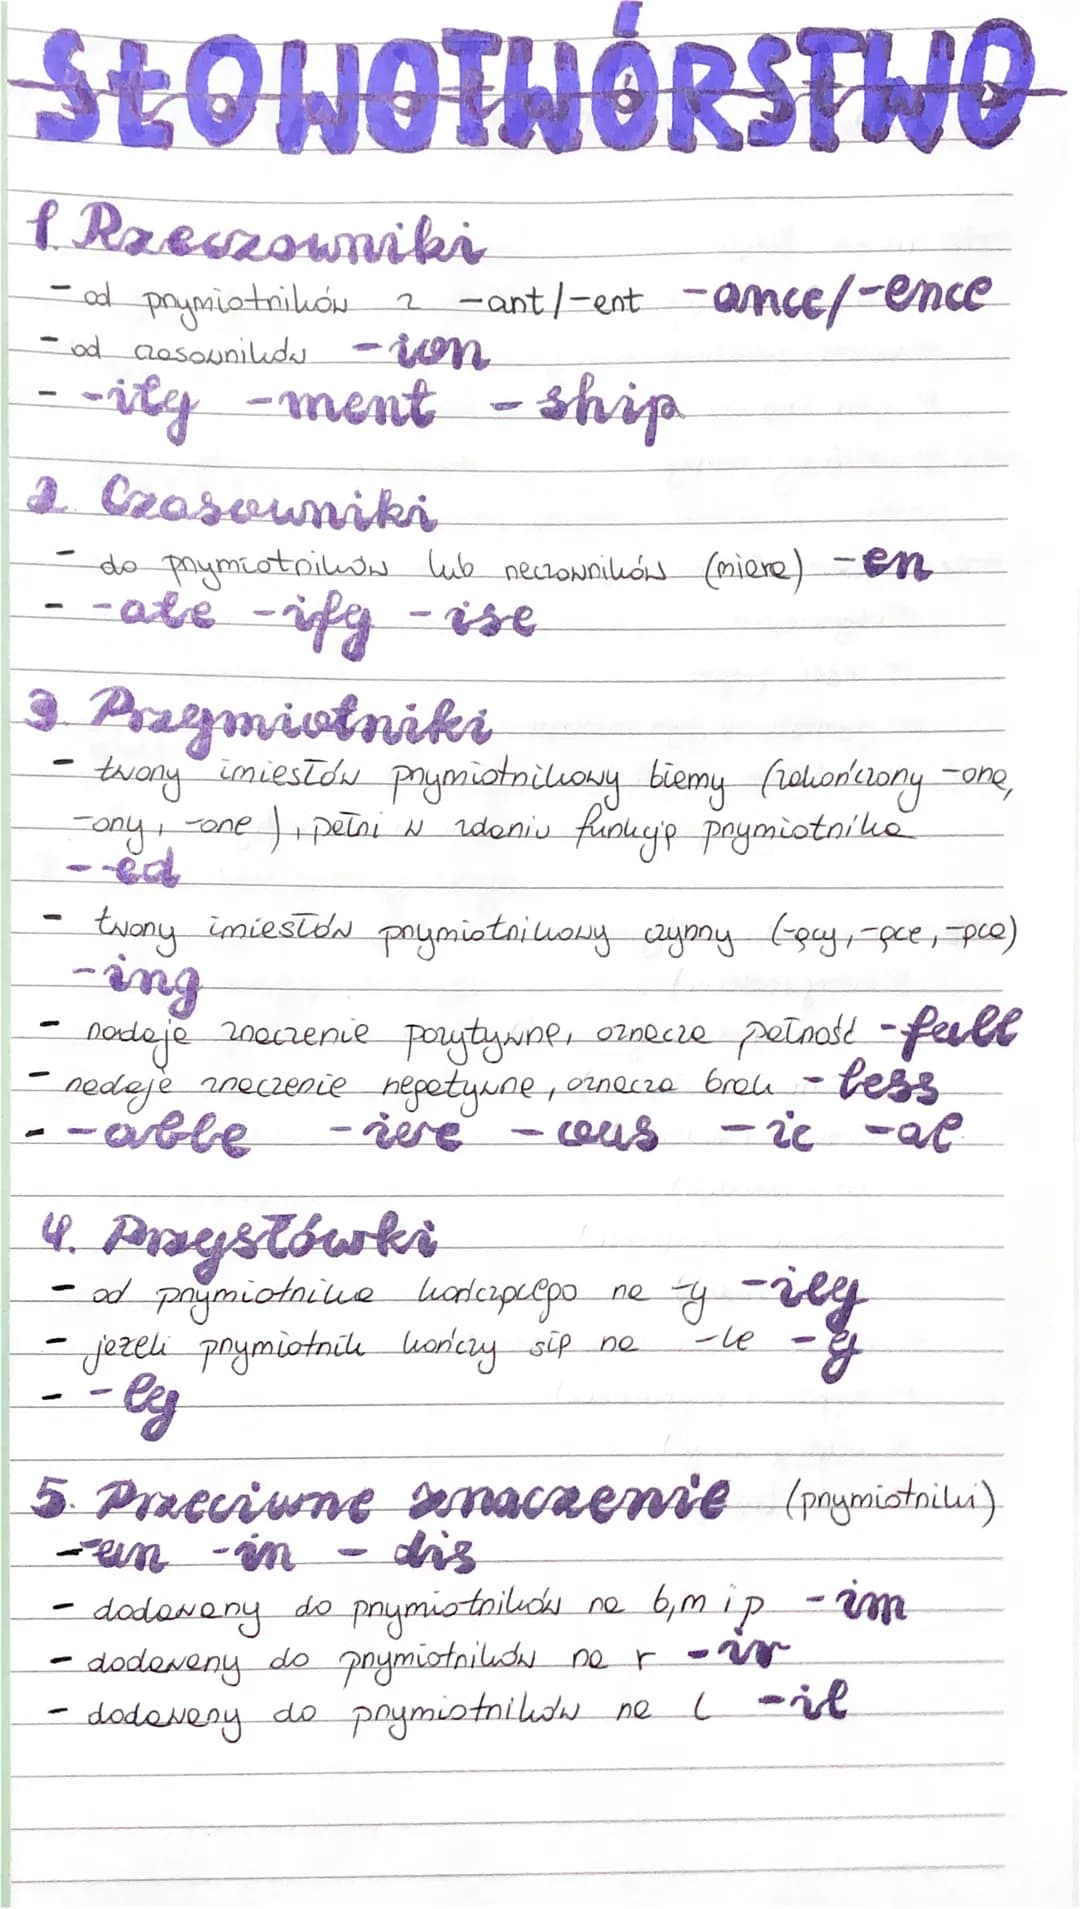 SŁOWOTWÓRSTWO
1. Rzeczowniki
- od przymiotników z -ant/-ent -ance/-ence
- od czasowników -ion
- -ity -ment -ship
2. Czasowniki
- do przymiotników lub rzeczowników (miara) -en
- -ate -ify -ise
3. Przymiotniki
- tworzy imiesłów przymiotnikowy bierny (zakończony -ona,
-ony, -one), pełni w zdaniu funkcję przymiotnika
- -ed
- tworzy imiesłów przymiotnikowy czynny (-ący, -ące, -ąca)
-ing
- nadaje znaczenie pozytywne, oznacza pełność -full
- nadaje znaczenie negatywne, oznacza brak -less
- -able -ive -ous -ic -al
4. Przysłówki
- od przymiotnika kończącego na -y -ily
- jeżeli przymiotnik kończy się na -le -y
- -ly
5. Przeciwne znaczenie (przymiotniki)
-un -in -dis
- dodawany do przymiotników na b,m i p -im
- dodawany do przymiotników na r -ir
- dodawany do przymiotników na l -il